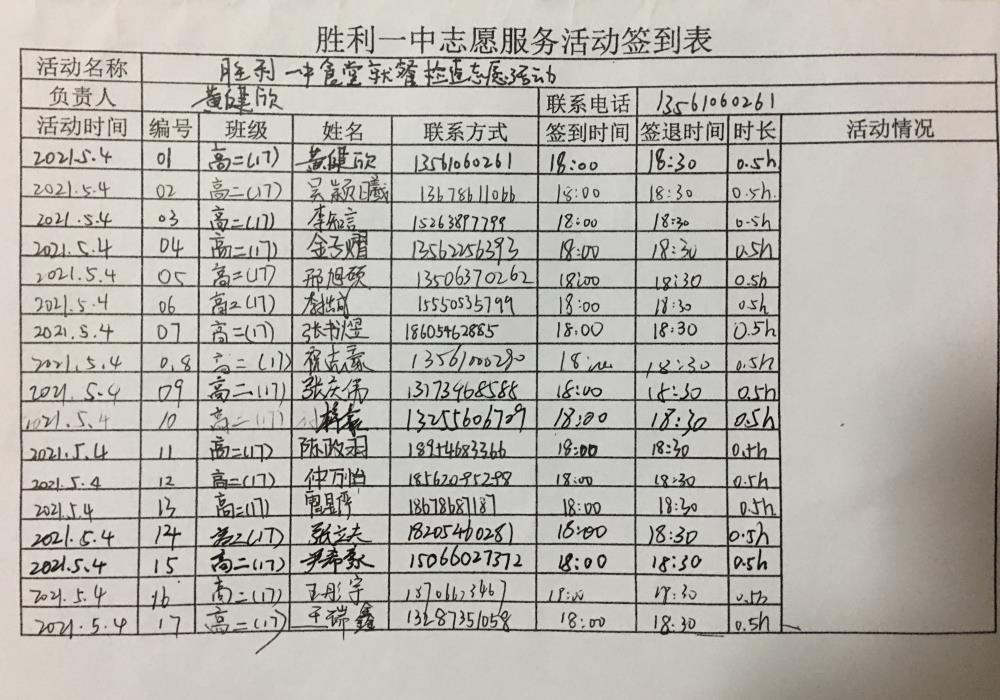 胜利一中志愿服务活动签到表
活动名称 胜利一中食堂就餐检查志愿活动
负责人 黄健欣 联系电话 13561060261
活动时间 编号 班级 姓名 联系方式 签到时间 签退时间 时长 活动情况
2021.5.4 01 高二(17) 黄健欣 13561060261 18:00 18:30 0.5h
2021.5.4 02 高二(17) 吴颖曦 13678611066 18:00 18:30 0.5h.
2021.5.4 03 高二(17) 李知言 15263897799 18:00 18:30 0.5h
2021.5.4 04 高二(17) 金子熠 13562256393 18:00 18:30 0.5h
2021.5.4 05 高二(17) 邢旭硕 13506370262 18:00 18:30 0.5h
2021.5.4 06 高2(17) 15550535799 18:00 18:30 0.5h
2021.5.4 07 高二(17) 张书煜 18605462885 18:00 18:30 0.5h
2021.5.4 0.8 高二(17) 13561000280 18:00 18:30 0.5h
2021.5.4 09 高二(17) 张庆伟 13173468588 18:00 18:30 0.5h
2021.5.4 10 高二(17) 13255606709 18:00 18:30 0.5h
2021.5.4 11 高二(17) 陈政羽 18954683366 18:00 18:30 0.5h
2021.5.4 12 高二(17) 仲万怡 18562095298 18:00 18:30 0.5h
2021.5.4 13 高二(17) 18678687187 18:00 18:30 0.5h
2021.5.4 14 高二(17) 张立夫 18205460281 18:00 18:30 0.5h
2021.5.4 15 高二(17) 尹希豪 15066027372 18:00 18:30 0.5h
2021.5.4 16 高二(17) 王彤宇 18706623467 18:00 18:30 0.5h
2021.5.4 17 高二(17) 王瑞鑫 13287351058 18:00 18:30 0.5h